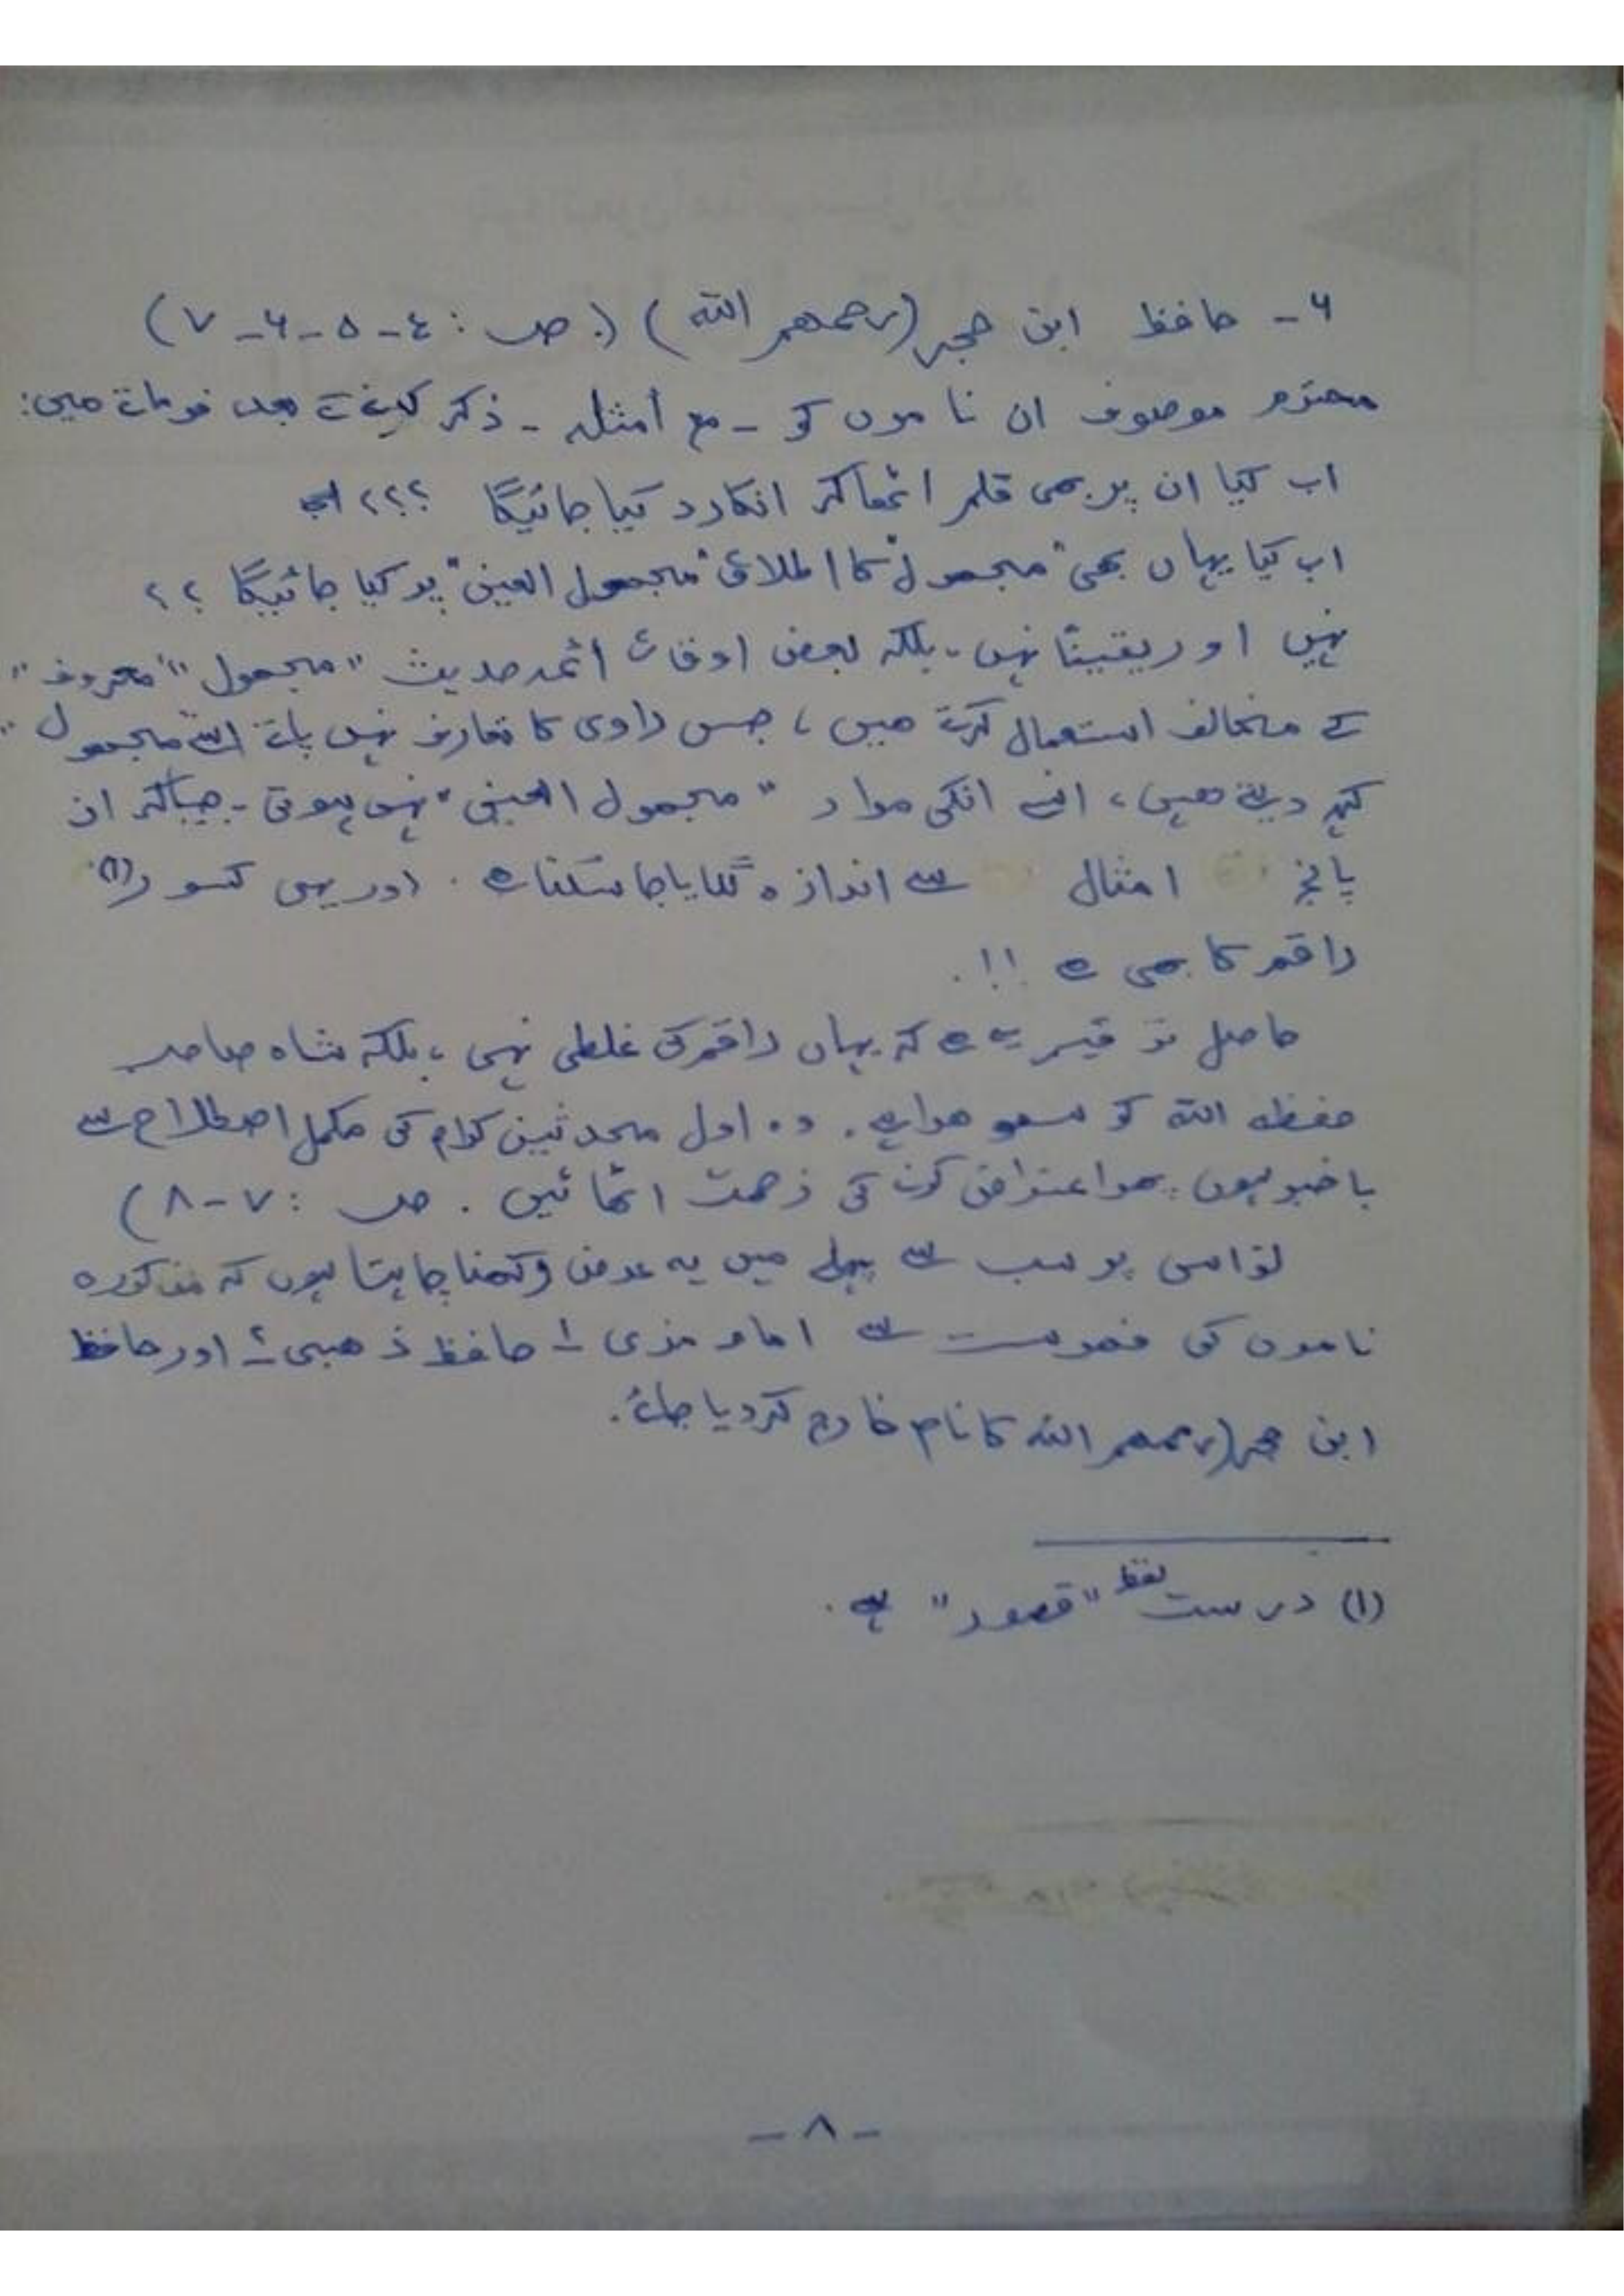 ۶- حافظ ابن حجر (رحمهم اللہ) (. ص : ٤-٥-۶-٧)
محترم موصوف ان ناموں کو - مع أمثلہ - ذکر کرنے کے بعد فرماتے ہیں:
اب کیا ان پر بھی قلم اٹھا کر انکار د کیا جائیگا ؟؟؟
اب کیا یہاں بھی "مجھول" کا اطلاق "مجھول العین" پر کیا جائیگا ؟؟
نہیں اور یقیناً نہیں - بلکہ بعض اوقات ائمہ حدیث "مجھول" "معروف"
کے مخالف استعمال کرتے ھیں ، جس راوی کا تعارف نہیں پاتے اسے مجھول
کہہ دیتے ھیں ، اس سے انکی مراد "مجھول العین" نہیں ہوتی - جیساکہ ان
پانچ امثال سے اندازہ لگایا جا سکتا ہے . اور یہی کسور (١)
راقم کا بھی ہے !!.
حاصل یہ ہے کہ یہاں راقم کی غلطی نہیں ، بلکہ شاہ صاحب
حفظہ اللہ کو سھو ھوا ہے . وہ اول محدثین کرام کی مکمل اصطلاح سے
باخبر ہوں پھر اعتراض کرنے کی زحمت اٹھائیں . ص : ٧-٨)
تو اس پر سب سے پہلے میں یہ عرض رکھنا چاہتا ہوں کہ مذکورہ
ناموں کی فہرست سے امام مزی -١ حافظ ذھبی -٢ اور حافظ
ابن حجر (رحمھم اللہ کا نام خارج کر دیا جائے .
(١) درست لفظ "قصور" ہے .
- ٨ -